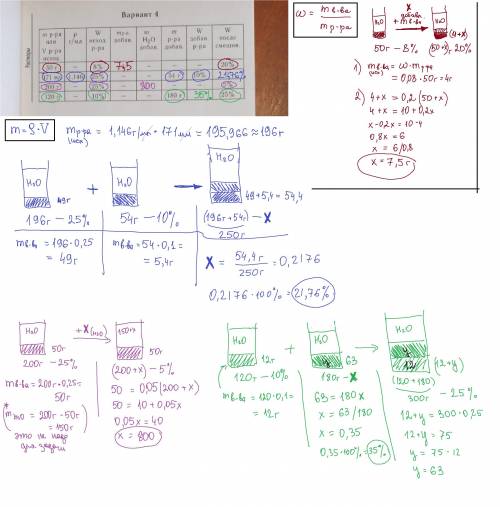 Вариант 4
Растворы
m р-ра или V р-ра исход. | ρ г/мл | W исход. р-ра | m р.в. добав. | m H₂O добав. | m р-ра добав. | W р-ра добав. | W после смешив.
50 г | – | 8% | 7,5 | – | – | – | 20%
171 мл | 1,146 | 25% | – | – | 54 г | 10% | 21,76%
200 г | – | 25% | – | 800 | – | – | 5%
120 г | – | 10% | – | – | 180 г | 35% | 25%
ω = m в-ва / m р-ра
H₂O + X добав. в-ва → H₂O (4+x)
50г – 8% (50+x) 20%
1) m в-ва (исх) = ω · m р-ра
= 0,08 · 50г = 4г
2) 4+x = 0,2 (50+x)
4+x = 10 + 0,2x
x - 0,2x = 10 - 4
0,8x = 6
x = 6/0,8
x = 7,5г
m = ρ · V
m р-ра (исх) = 1,146 г/мл · 171 мл = 195,966 ≈ 196г
H₂O 49г + H₂O → H₂O 49+5,4 = 54,4
196г – 25% 54г – 10% (196г+54г) – X
250г
m в-ва = 196 · 0,25
= 49г
m в-ва = 54 · 0,1 =
= 5,4г
X = 54,4г / 250г = 0,2176
0,2176 · 100% = 21,76%
H₂O 50г + X (H₂O) 150+x 50г
200г – 25% (200+x) – 5%
m в-ва = 200г · 0,25 =
50г
* m H₂O = 200г - 50г
= 150г
это не надо
для задачи
50 = 0,05(200+x)
50 = 10 + 0,05x
0,05x = 40
x = 800
H₂O 12г + H₂O y 63 → H₂O y 12 (12+y)
120г – 10% 180г – X (120+180) – 25%
300г
m в-ва = 120 · 0,1 =
= 12г
63 = 180x
x = 63/180
x = 0,35
0,35 · 100% = 35%
12+y = 300 · 0,25
12+y = 75
y = 75 - 12
y = 63